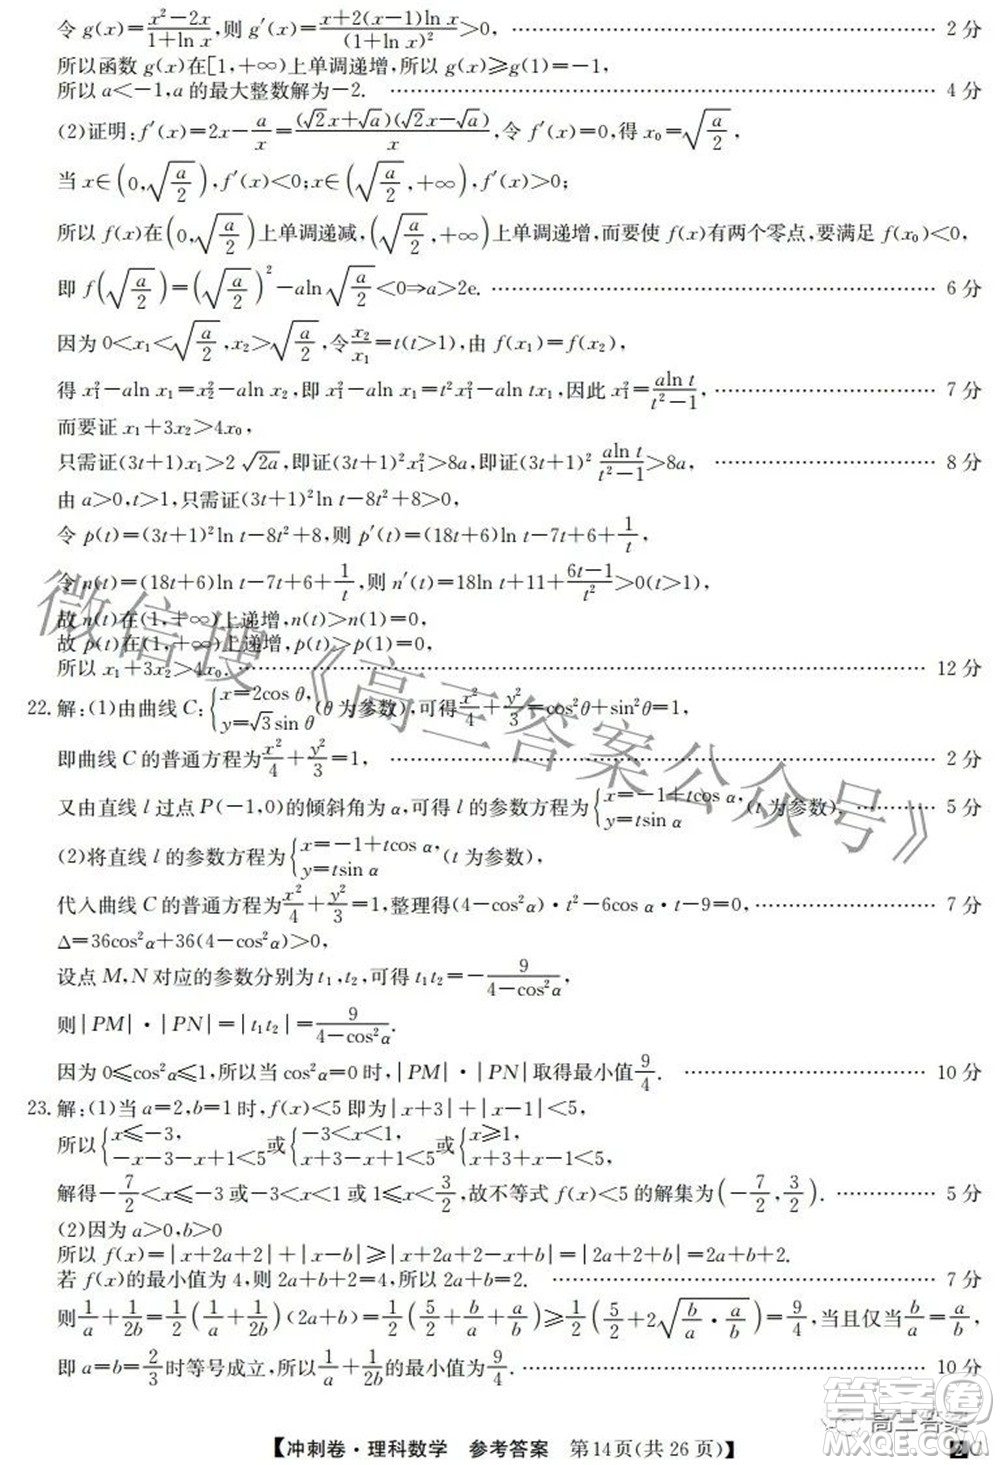 令 g(x)=\frac{x²-2x}{1+ln x},则 g′(x)=\frac{x+2(x-1)ln x}{(1+ln x)²}>0, ……………… 2 分
所以函数 g(x)在[1,+∞)上单调递增,所以 g(x)≥g(1)=-1,
所以 a<-1,a 的最大整数解为-2. ……………… 4 分
(2)证明:f′(x)=2x-\frac{a}{x}=\frac{(√2x+√a)(√2x-√a)}{x},令 f′(x)=0,得 x₀=√(\frac{a}{2}),
当 x∈(0,√(\frac{a}{2})),f′(x)<0;x∈(√(\frac{a}{2}),+∞),f′(x)>0;
所以 f(x)在(0,√(\frac{a}{2}))上单调递减,(√(\frac{a}{2}),+∞)上单调递增,而要使 f(x)有两个零点,要满足 f(x₀)<0,
即 f(√(\frac{a}{2}))=(√(\frac{a}{2}))²-aln√(\frac{a}{2})<0⇒a>2e. ……………… 6 分
因为 0<x₁<√(\frac{a}{2}),x₂>√(\frac{a}{2}),令\frac{x₂}{x₁}=t(t>1),由 f(x₁)=f(x₂),
得 x₁²-aln x₁=x₂²-aln x₂,即 x₁²-aln x₁=t²x₁²-aln tx₁,因此 x₁²=\frac{aln t}{t²-1}, ……………… 7 分
而要证 x₁+3x₂>4x₀,
只需证(3t+1)x₁>2√(2a),即证(3t+1)²x₁²>8a,即证(3t+1)²\frac{aln t}{t²-1}>8a, ……………… 8 分
由 a>0,t>1,只需证(3t+1)²ln t-8t²+8>0,
令 p(t)=(3t+1)²ln t-8t²+8,则 p′(t)=(18t+6)ln t-7t+6+\frac{1}{t},
令 n(t)=(18t+6)ln t-7t+6+\frac{1}{t},则 n′(t)=18ln t+11+\frac{6t-1}{t²}>0(t>1),
故 n(t)在(1,+∞)上递增,n(t)>n(1)=0,
故 p(t)在(1,+∞)上递增,p(t)>p(1)=0,
所以 x₁+3x₂>4x₀. ……………… 12 分
22.解:(1)由曲线 C:{x=2cos θ, y=√3sin θ (θ 为参数),可得\frac{x²}{4}+\frac{y²}{3}=cos²θ+sin²θ=1,
即曲线 C 的普通方程为\frac{x²}{4}+\frac{y²}{3}=1, ……………… 2 分
又由直线 l 过点 P(-1,0)的倾斜角为 α,可得 l 的参数方程为{x=-1+tcos α, y=tsin α (t 为参数). ……………… 5 分
(2)将直线 l 的参数方程为{x=-1+tcos α, y=tsin α (t 为参数),
代入曲线 C 的普通方程为\frac{x²}{4}+\frac{y²}{3}=1,整理得(4-cos²α)·t²-6cos α·t-9=0, ……………… 7 分
Δ=36cos²α+36(4-cos²α)>0,
设点 M,N 对应的参数分别为 t₁,t₂,可得 t₁t₂=-\frac{9}{4-cos²α},
则|PM|·|PN|=|t₁t₂|=\frac{9}{4-cos²α}.
因为 0≤cos²α≤1,所以当 cosα=0 时,|PM|·|PN|取得最小值\frac{9}{4}. ……………… 10 分
23.解:(1)当 a=2,b=1 时,f(x)<5 即为|x+3|+|x-1|<5,
所以{x≤-3, -x-3-x+1<5 或{-3<x<1, x+3-x+1<5 或{x≥1, x+3+x-1<5
解得-\frac{7}{2}<x≤-3 或-3<x<1 或 1≤x<\frac{3}{2},故不等式 f(x)<5 的解集为(-\frac{7}{2},\frac{3}{2}). ……………… 5 分
(2)因为 a>0,b>0
所以 f(x)=|x+2a+2|+|x-b|≥|x+2a+2-x+b|=|2a+2+b|=2a+b+2.
若 f(x)的最小值为 4,则 2a+b+2=4,所以 2a+b=2. ……………… 7 分
则\frac{1}{a}+\frac{1}{2b}=\frac{1}{2}(\frac{1}{a}+\frac{1}{2b})(2a+b)=\frac{1}{2}(\frac{5}{2}+\frac{b}{a}+\frac{a}{b})≥\frac{1}{2}(\frac{5}{2}+2√(\frac{b}{a}·\frac{a}{b}))=\frac{9}{4},当且仅当\frac{b}{a}=\frac{a}{b},
即 a=b=\frac{2}{3}时等号成立,所以\frac{1}{a}+\frac{1}{2b}的最小值为\frac{9}{4}. ……………… 10 分
【冲刺卷·理科数学 参考答案 第14页(共 26 页)】
微信搜《高三答案公众号》
高三答案
答案圈